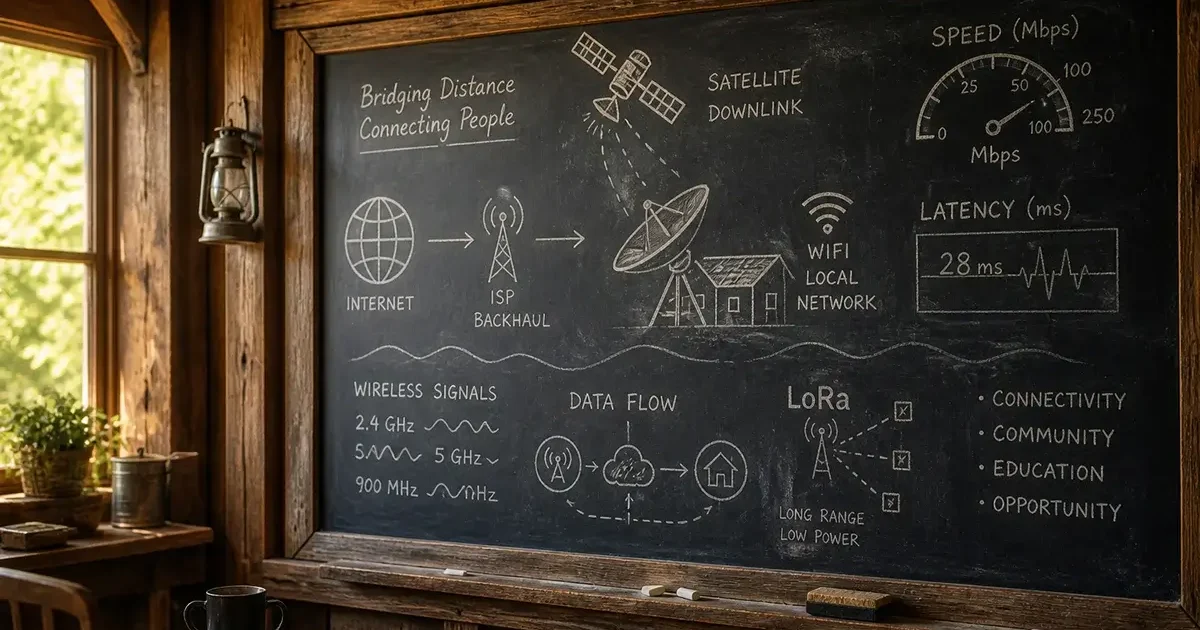 Bridging Distance
Connecting People
SATELLITE
DOWNLINK
SPEED (Mbps)
0
25
50
100
100
250
Mbps
INTERNET
ISP
BACKHAUL
WIFI
LOCAL
NETWORK
LATENCY (ms)
28 ms
WIRELESS SIGNALS
2.4 GHz
5 5 GHz
900 MHz HHz
DATA FLOW
LoRa
LONG RANGE
LOW POWER
• CONNECTIVITY
• COMMUNITY
• EDUCATION
• OPPORTUNITY